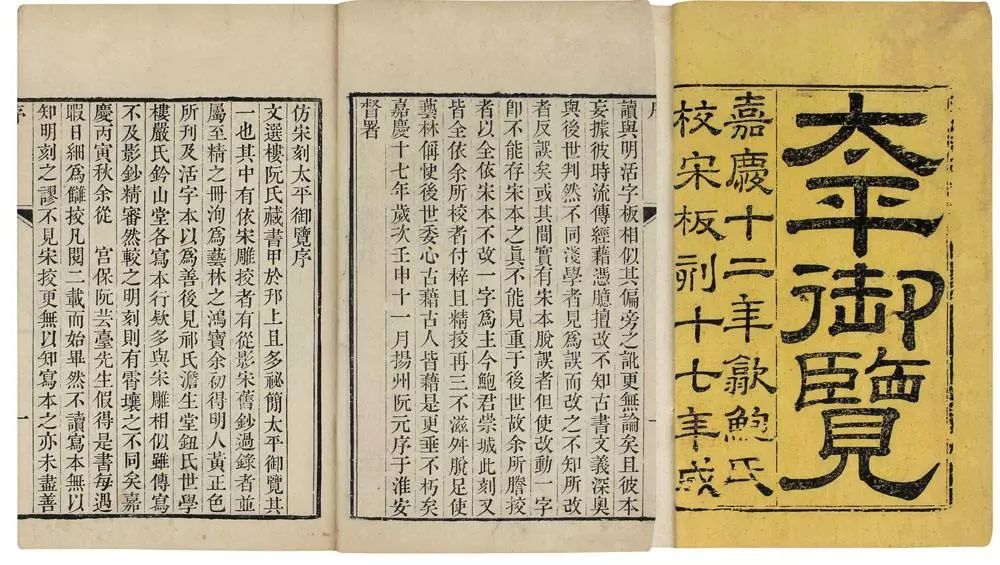 太平御覽
嘉慶十二年歙鮑氏
校宋板刷十七年成
序
讀與明活字板相似其偏旁之訛更無論矣且彼本
妄據彼時流傳經藉憑臆擅改不知古書文義深奧
與後世判然不同淺學者見為誤而改之不知所改
者反誤矣或其間實有宋本脫誤者但使改動一字
卽不能存宋本之眞不能見重于後世故余所謄挍
者以全依宋本不改一字為主今鮑君崇城此刻又
皆全依余所挍者付梓且精挍再三不滋舛脫足使
藝林稱快使後世委心古藉古人皆藉是更垂不朽矣
嘉慶十七年歲次壬申十一月揚州阮元序于淮安
督署
一
仿宋刻太平御覽序
文選樓阮氏藏書甲於邗上且多祕簡太平御覽其
一也其中有依宋雕挍者有從影宋舊鈔過錄者並
屬至精之冊洵為藝林之鴻寶余初得明人黃正色
所刊及活字本以為善後見祁氏澹生堂鈕氏世學
樓嚴氏鈐山堂各寫本行欵多與宋雕相似雖傳寫
不及影鈔精審然較之明刻則有霄壤之不同矣嘉
慶丙寅秋余從 宮保阮芸臺先生假得是書每遇
暇日細為讎挍凡閱二載而始畢然不讀寫本無以
知明刻之謬不見宋挍更無以知寫本之亦未盡善
序
一